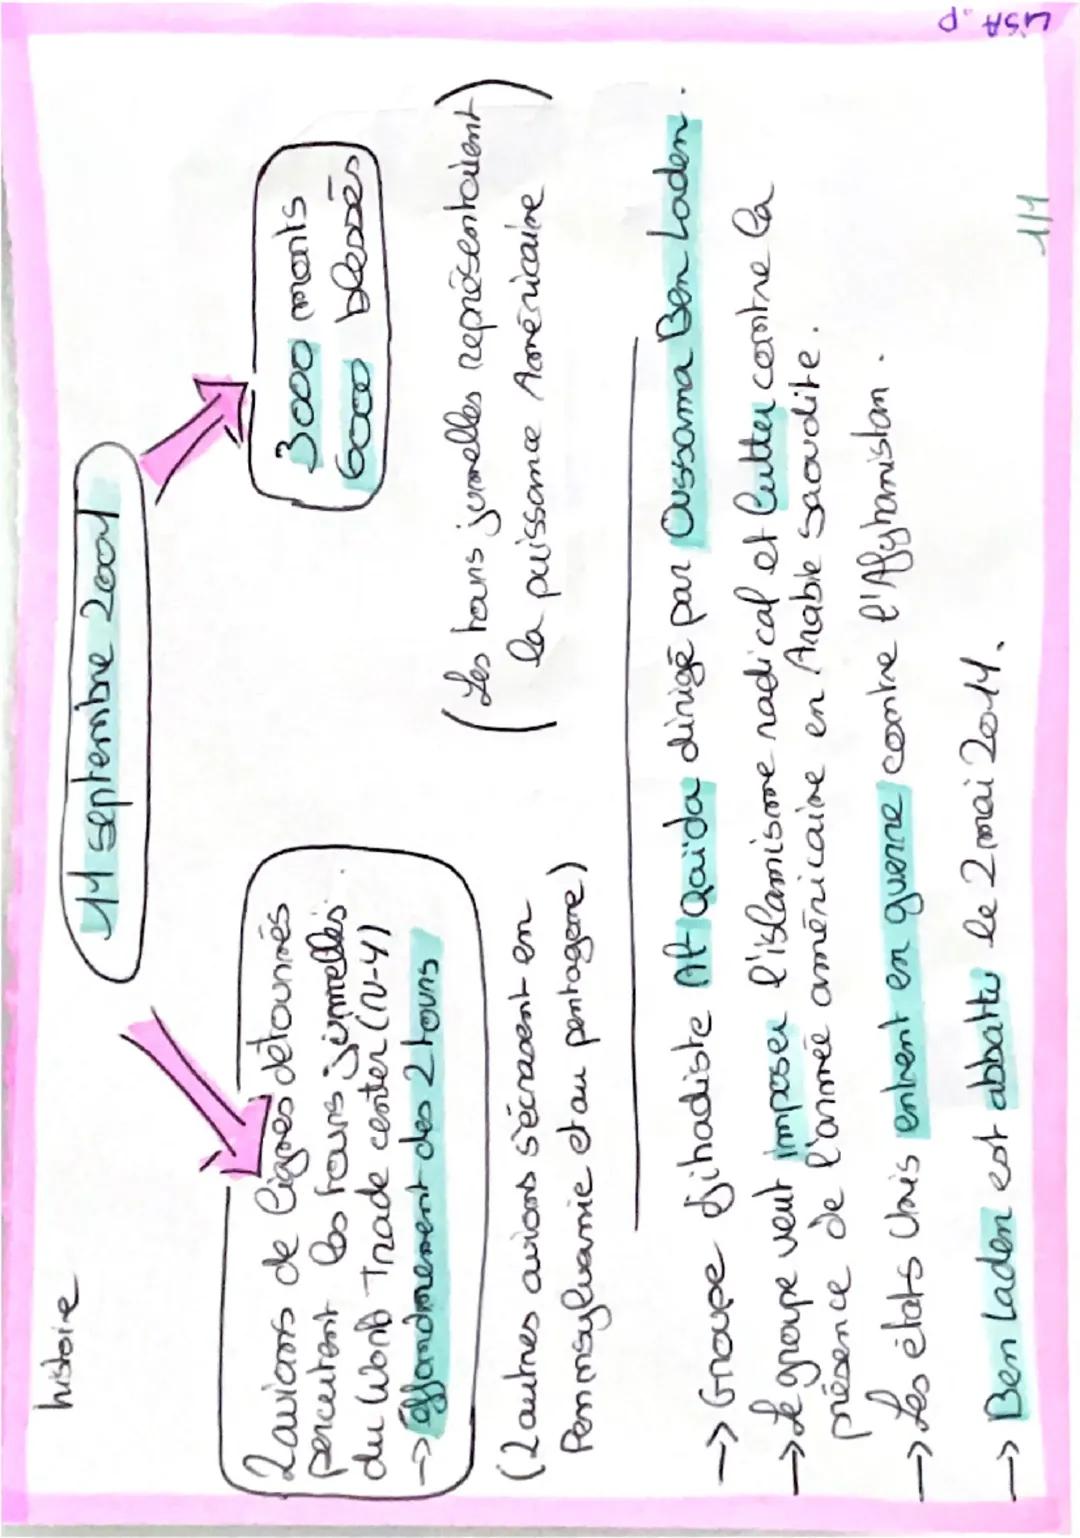 LISA.P
histoire
11 septembre 2001
2 avions de lignes détournés
percutent les tours jumelles
du World Trade center (N-Y)
-> éffondrement des 2 tours
3000 morts
6000 blessés
(2 autres avions s'écrasent en
Pennsylvanie et au pentagone)
(Les tours jumelles représentaient
la puissance Américaine)
-> Groupe djihadiste Al Qaïda dirigé par Oussama Ben Laden.
-> Le groupe veut imposer l'islamisme radical et lutter contre la
présence de l'armée américaine en Arabie saoudite.
-> Les états Unis entrent en guerre contre l'Afghanistan.
-> Ben Laden est abbattu le 2 mai 2011.
1/1